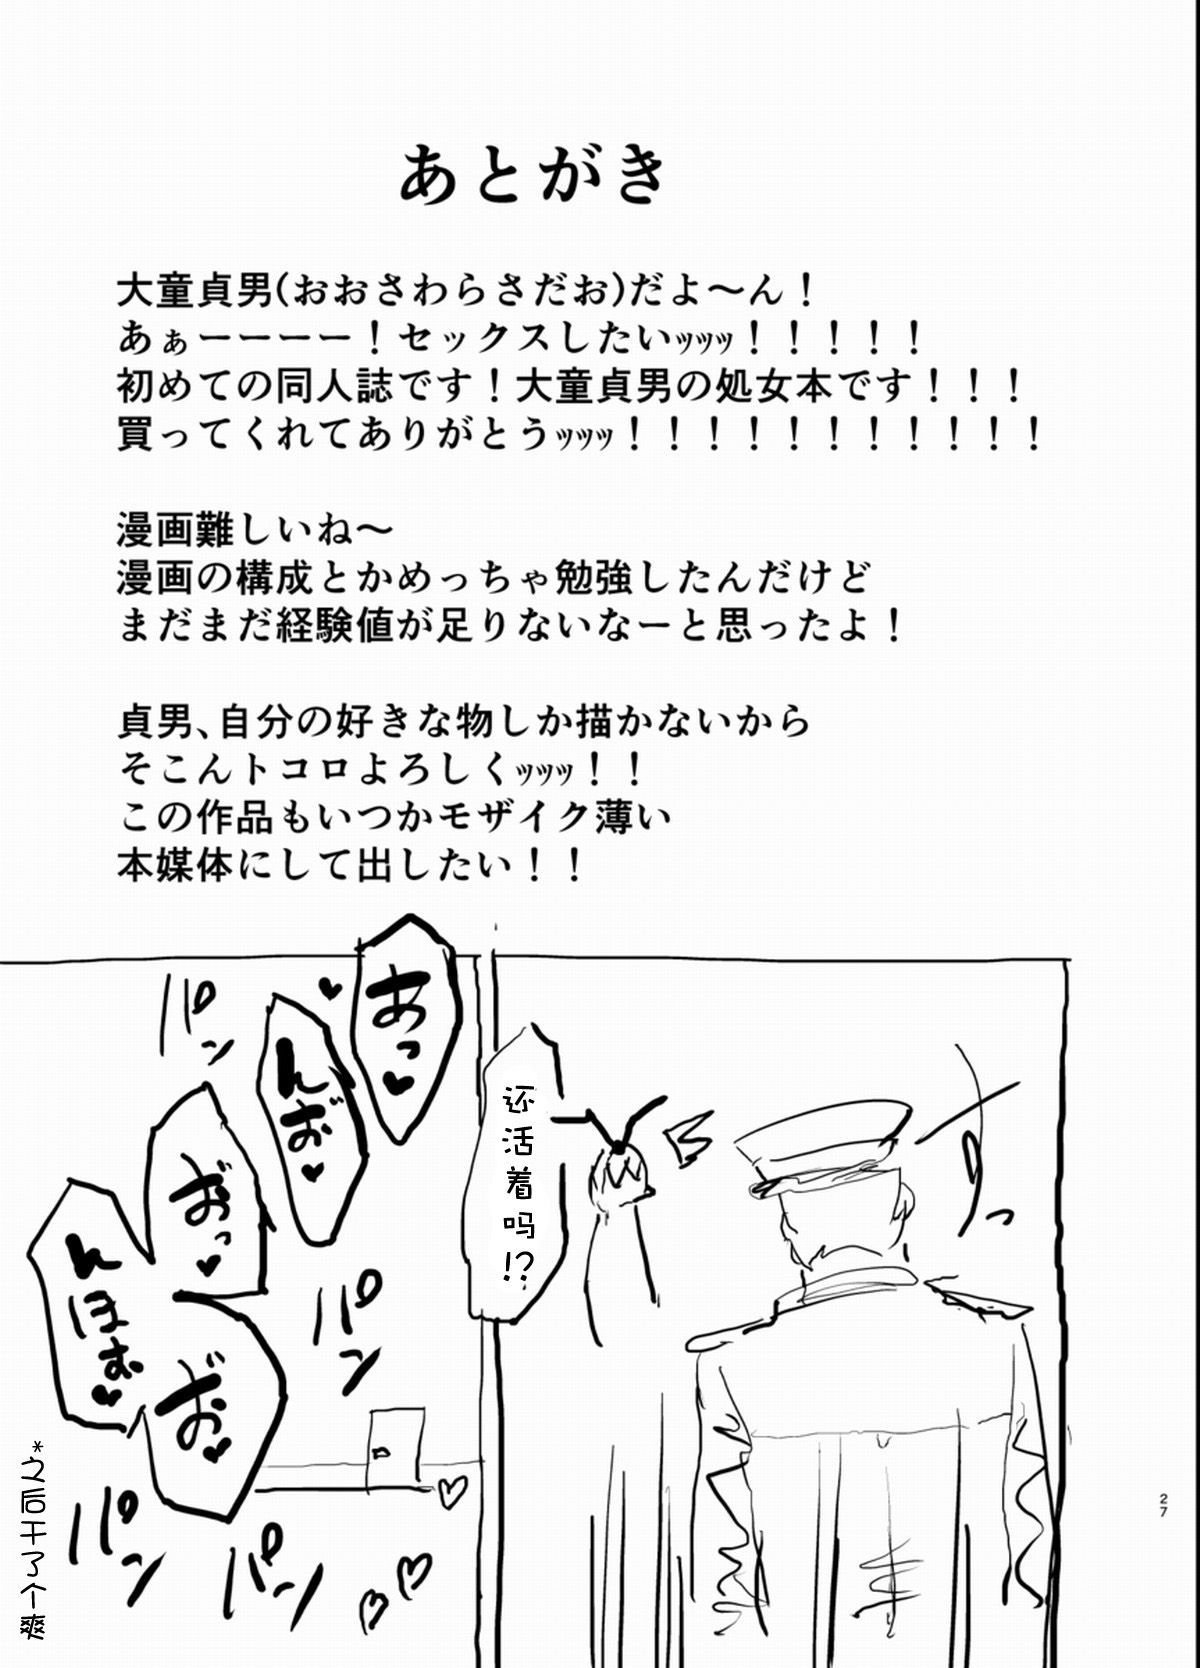 あとがき
大童貞男(おおさわらさだお)だよ〜ん！
あぁーーーー！セックスしたいッッッ！！！！！
初めての同人誌です！大童貞男の処女本です！！！
買ってくれてありがとうッッッ！！！！！！！！！！！
漫画難しいね〜
漫画の構成とかめっちゃ勉強したんだけど
まだまだ経験値が足りないなーと思ったよ！
貞男、自分の好きな物しか描かないから
そこんトコロよろしくッッッ！！
この作品もいつかモザイク薄い
本媒体にして出したい！！
っ
还活着吗!?
あっ♥
んお゛♥
お゛っ♥
んほお♥
お゛♥
パン
パン
パン
パン
*之后干了个爽
27